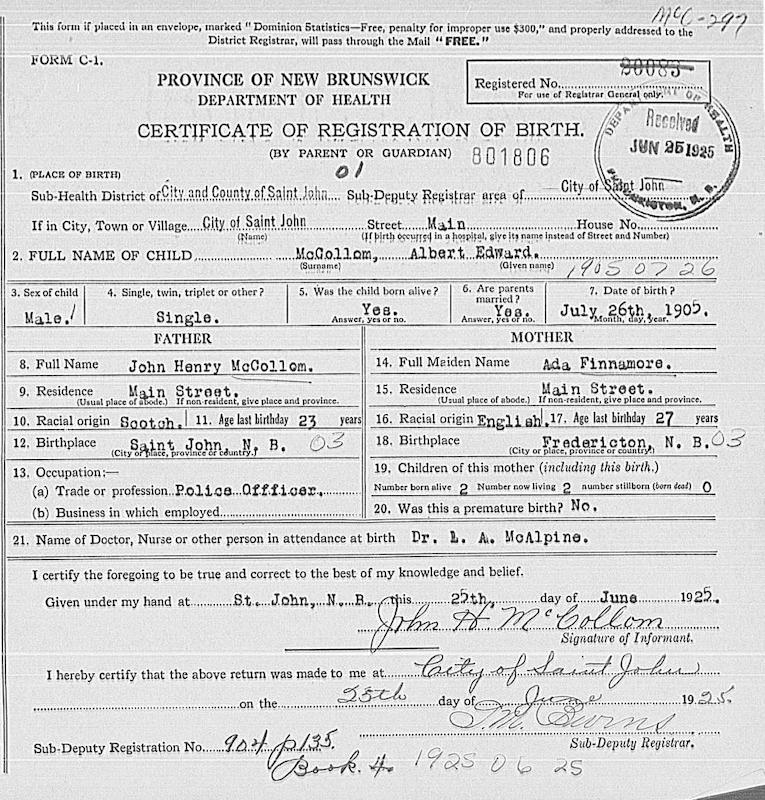 McC-297
This form if placed in an envelope, marked "Dominion Statistics—Free, penalty for improper use $300," and properly addressed to the
District Registrar, will pass through the Mail "FREE."
FORM C-1.
Registered No. 20083
For use of Registrar General only.
PROVINCE OF NEW BRUNSWICK
DEPARTMENT OF HEALTH
DEPARTMENT OF HEALTH
Received
JUN 25 1925
FREDERICTON, N. B.
CERTIFICATE OF REGISTRATION OF BIRTH.
(BY PARENT OR GUARDIAN) 801806
01
1. (PLACE OF BIRTH)
Sub-Health District of City and County of Saint John Sub-Deputy Registrar area of City of Saint John
If in City, Town or Village City of Saint John Street Main House No.
(Name) (If birth occurred in a hospital, give its name instead of Street and Number)
2. FULL NAME OF CHILD McCollom, Albert Edward.
(Surname) (Given name) 1905 07 26
3. Sex of child 4. Single, twin, triplet or other? 5. Was the child born alive? 6. Are parents married? 7. Date of birth?
Male. Single. Yes. Yes. July 26th, 1905.
Answer, yes or no. Answer, yes or no. Month, day, year.
FATHER MOTHER
8. Full Name John Henry McCollom. 14. Full Maiden Name Ada Finnamore.
9. Residence Main Street. 15. Residence Main Street.
(Usual place of abode.) If non-resident, give place and province. (Usual place of abode.) If non-resident, give place and province.
10. Racial origin Scotch. 11. Age last birthday 23 years 16. Racial origin English. 17. Age last birthday 27 years
12. Birthplace Saint John, N. B. 03 18. Birthplace Fredericton, N. B. 03
(City or place, province or country.) (City or place, province or country)
13. Occupation:— 19. Children of this mother (including this birth.)
(a) Trade or profession Police Offficer. Number born alive 2 Number now living 2 number stillborn (born dead) 0
(b) Business in which employed 20. Was this a premature birth? No.
21. Name of Doctor, Nurse or other person in attendance at birth Dr. L. A. McAlpine.
I certify the foregoing to be true and correct to the best of my knowledge and belief.
Given under my hand at St. John, N. B. this 25th, day of June 1925.
John H McCollom
Signature of Informant.
I hereby certify that the above return was made to me at City of Saint John
on the 25th day of June 1925.
T.M. Burns
Sub-Deputy Registration No. 904 p135. Sub-Deputy Registrar.
Book 4. 1925 06 25